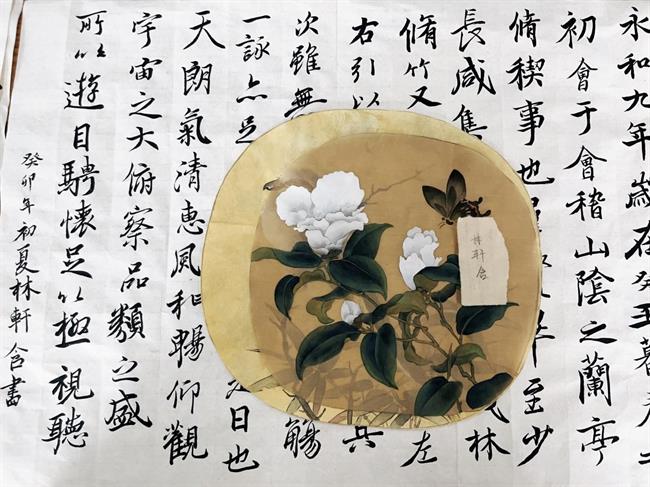 永和九年歲在癸丑暮春
初會于會稽山陰之蘭亭
脩禊事也 至少
長咸集 林
脩竹又 左
右引以 其
次雖無 觴
一詠亦足 日也
天朗氣清惠風和暢仰觀
宇宙之大俯察品類之盛
所以遊目騁懷足以極視聽
癸卯年初夏林軒含書
林軒含